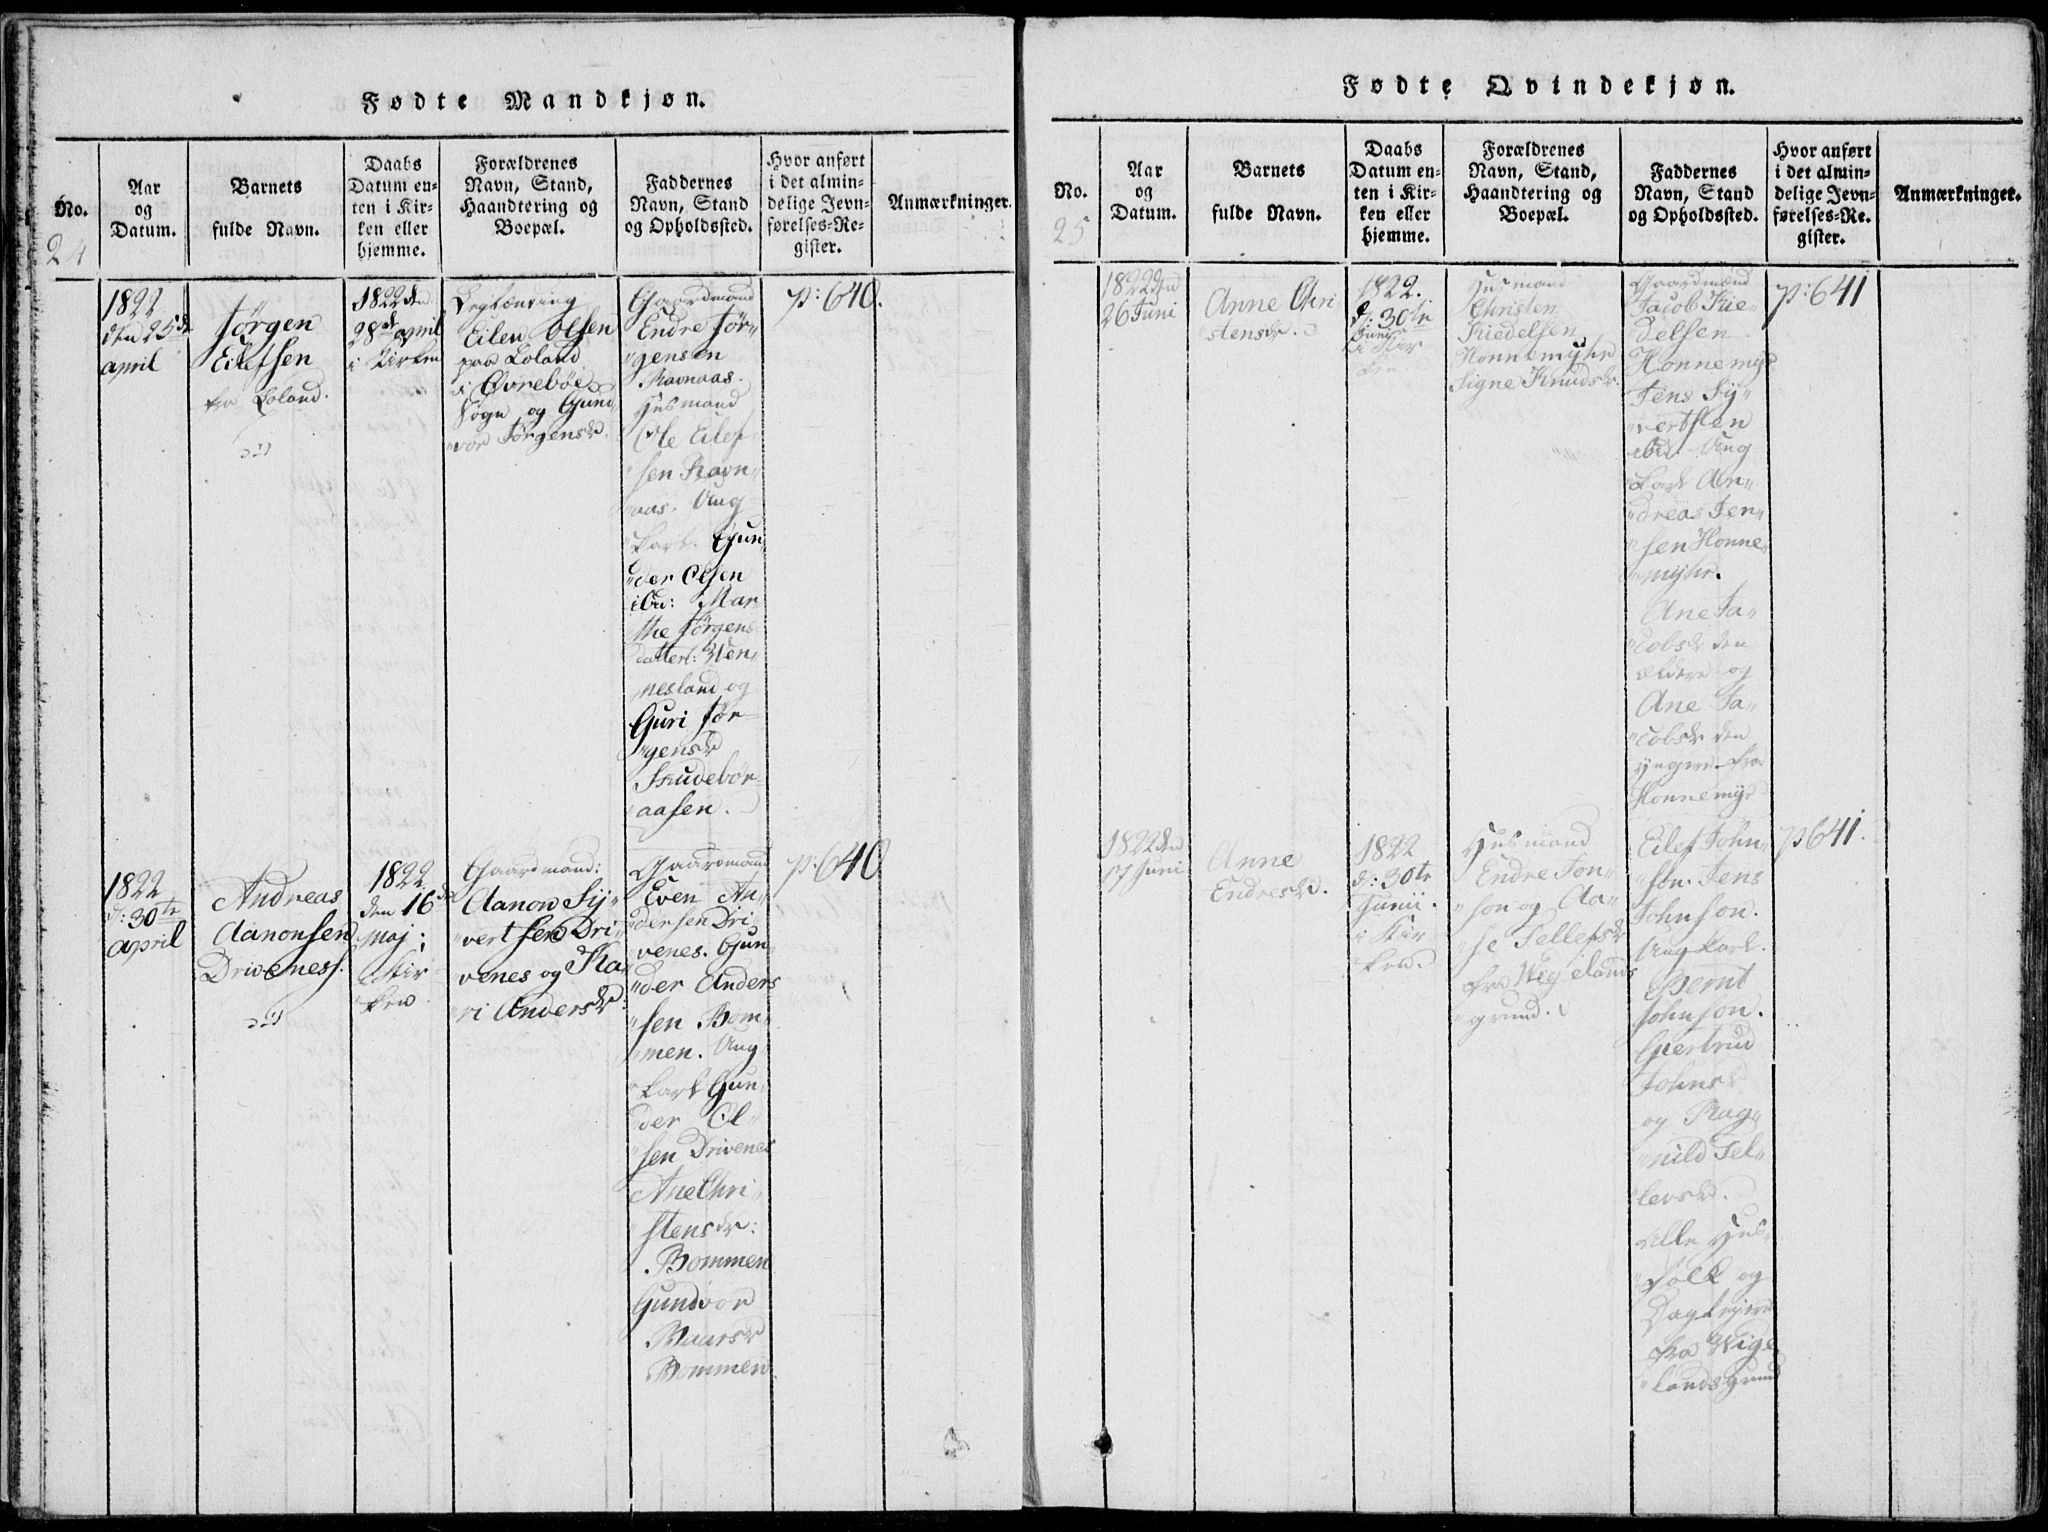 Fødte Mandkjøn.
No.
24
Aar
og
Datum.
Barnets
fulde Navn.
Daabs
Datum en-
ten i Kir-
ken eller
hjemme.
Forældrenes
Navn, Stand,
Haandtering og
Boepæl.
Faddernes
Navn, Stand
og Opholdssted.
Hvor anført
i det almin-
delige Jevn-
førelses-Re-
gister.
Anmærkninger.
1822
den 25de
april
Jørgen
Eilefsen
fra Loland.
1822 den
28de april
i Kirken
Eilev Olsen
paa Loland
i Øvrebøe
Sogn og Gund
vor Jørgensdr.
Gaardmand
Endre Jør-
gensen
Ravnaas.
Husmand
Ole Eilef-
sen Ravn-
aas. Ung
karl. Gun
der Olsen
ibd: Mar
the Jørgens
datter: Wen-
nesland og
Guri Jør-
gensdr
Skudebør-
aasen.
p: 640.
1822
d: 30te
april
Andreas
Aanonsen
Drivenes.
1822
den 16de
Maj i
Kir-
ken
Gaardmand:
Aanon Sy-
vertsen Dri-
venes og Ka-
ri Andersdr
Gaardmand
Even An-
dersen Dri-
venes. Gun-
der Anders
sen Bom-
men. Ung
karl Gun-
der Ol-
sen Drivenes
Ane Chri-
stensdr:
Bommen
Gundvor
Bommen
p: 640
Fødte Qvindekjøn.
No.
25
Aar
og
Datum.
Barnets
fulde Navn.
Daabs
Datum en-
ten i Kir-
ken eller
hjemme.
Forældrenes
Navn, Stand,
Haandtering og
Boepæl.
Faddernes
Navn, Stand
og Opholdssted.
Hvor anført
i det almin-
delige Jevn-
førelses-Re-
gister.
Anmærkninger.
1822 den
26 Juni
Anne Chri
stensdr.
1822.
d: 30te
Juni
i Kir
ken
Husmand
Christen
Kiedelsen
Honnemyhr
Signe Knudsdr.
Gaardmænd
Jacob Kie-
delsen
Honnemyr
Jens Sy-
vertsen
ibd. Ung
karl An-
dreas Jen-
sen Honne-
myhr.
Ane Ja-
cobsdr den
ældere og
Ane Ja-
cobsdr den
yngere fra
Honnemyr
p: 641
1822 den
17 Juni
Anne
Endresdr.
1822
d: 30te
Junii.
i Kir
ken.
Husmand
Endre Jon-
son og Aa-
se Tellefsdr
fra Wigelands
grund.
Eilef John-
son. Jens
Johnson.
Ung karl.
Bernt
Johnson.
Gjertrud
Johnsdr
og Rag-
nild Tel-
levsdr.
Alle Hus-
folk og
fra Wige
landsgrund
p 641.